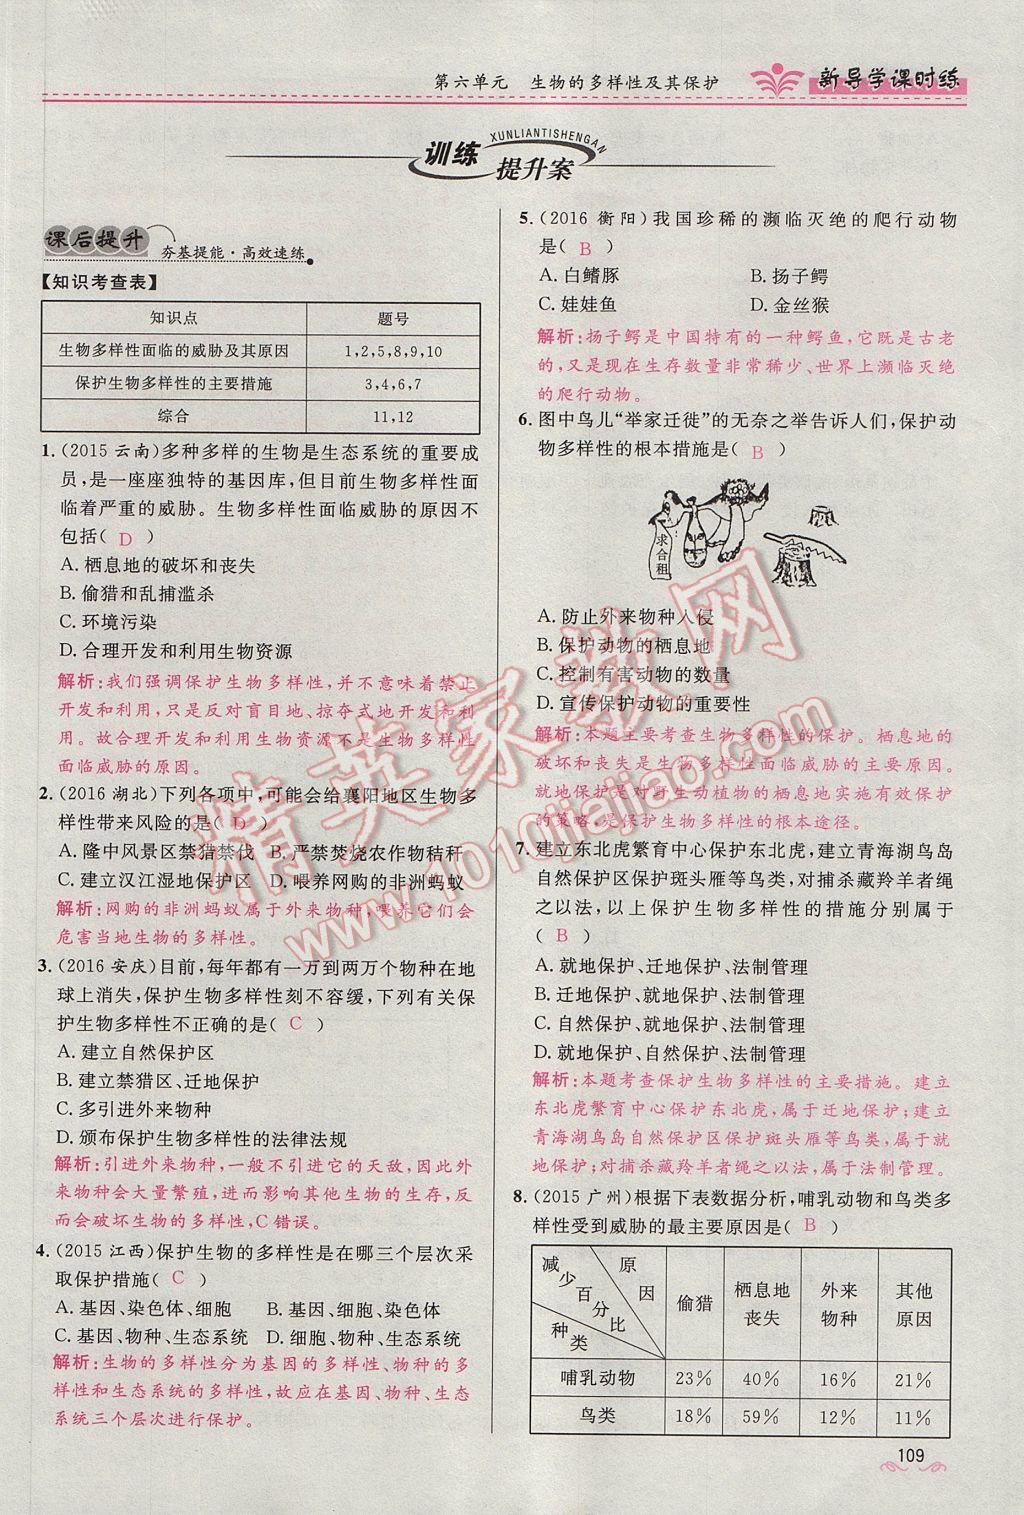 第六单元 生物的多样性及其保护
新导学课时练
XUNLIANTISHENGAN
训练
提升案
课后提升
夯基提能·高效速练
【知识考查表】
知识点 题号
生物多样性面临的威胁及其原因 1,2,5,8,9,10
保护生物多样性的主要措施 3,4,6,7
综合 11,12
1.(2015云南)多种多样的生物是生态系统的重要成
员,是一座座独特的基因库,但目前生物多样性面
临着严重的威胁。生物多样性面临威胁的原因不
包括( D )
A. 栖息地的破坏和丧失
B. 偷猎和乱捕滥杀
C. 环境污染
D. 合理开发和利用生物资源
解析:我们强调保护生物多样性,并不意味着禁止
开发和利用,只是反对盲目地、掠夺式地开发和利
用。故合理开发和利用生物资源不是生物多样性
面临威胁的原因。
2.(2016湖北)下列各项中,可能会给襄阳地区生物多
样性带来风险的是( D )
A. 隆中风景区禁猎禁伐 B. 严禁焚烧农作物秸秆
C. 建立汉江湿地保护区 D. 喂养网购的非洲蚂蚁
解析:网购的非洲蚂蚁属于外来物种,喂养它们会
危害当地生物的多样性。
3.(2016安庆)目前,每年都有一万到两万个物种在地
球上消失,保护生物多样性刻不容缓,下列有关保
护生物多样性不正确的是( C )
A. 建立自然保护区
B. 建立禁猎区、迁地保护
C. 多引进外来物种
D. 颁布保护生物多样性的法律法规
解析:引进外来物种,一般不引进它的天敌,因此外
来物种会大量繁殖,进而影响其他生物的生存,反
而会破坏生物的多样性,C错误。
4.(2015江西)保护生物的多样性是在哪三个层次采
取保护措施( C )
A. 基因、染色体、细胞 B. 基因、物种、染色体
C. 基因、物种、生态系统 D. 细胞、物种、生态系统
解析:生物的多样性分为基因的多样性、物种的多
样性和生态系统的多样性,故应在基因、物种、生态
系统三个层次进行保护。
5.(2016衡阳)我国珍稀的濒临灭绝的爬行动物
是( B )
A. 白鳍豚 B. 扬子鳄
C. 娃娃鱼 D. 金丝猴
解析:扬子鳄是中国特有的一种鳄鱼,它既是古老
的,又是现在生存数量非常稀少、世界上濒临灭绝
的爬行动物。
6.图中鸟儿“举家迁徙”的无奈之举告诉人们,保护动
物多样性的根本措施是( B )
求合租
A. 防止外来物种入侵
B. 保护动物的栖息地
C. 控制有害动物的数量
D. 宣传保护动物的重要性
解析:本题主要考查生物多样性的保护。栖息地的
破坏和丧失是生物多样性面临威胁的主要原因。
就地保护是对野生动植物的栖息地实施有效保护
的策略,是保护生物多样性的根本途径。
7.建立东北虎繁育中心保护东北虎,建立青海湖鸟岛
自然保护区保护斑头雁等鸟类,对捕杀藏羚羊者绳
之以法,以上保护生物多样性的措施分别属于
( B )
A. 就地保护、迁地保护、法制管理
B. 迁地保护、就地保护、法制管理
C. 自然保护、就地保护、法制管理
D. 就地保护、自然保护、法制管理
解析:本题考查保护生物多样性的主要措施。建立
东北虎繁育中心保护东北虎,属于迁地保护;建立
青海湖鸟岛自然保护区保护斑头雁等鸟类,属于就
地保护;对捕杀藏羚羊者绳之以法,属于法制管理。
8.(2015广州)根据下表数据分析,哺乳动物和鸟类多
样性受到威胁的最主要原因是( B )
减少百分比 原因 种类 偷猎 栖息地丧失 外来物种 其他原因
哺乳动物 23% 40% 16% 21%
鸟类 18% 59% 12% 11%
109
精英家教网
www.1010jiajiao.com